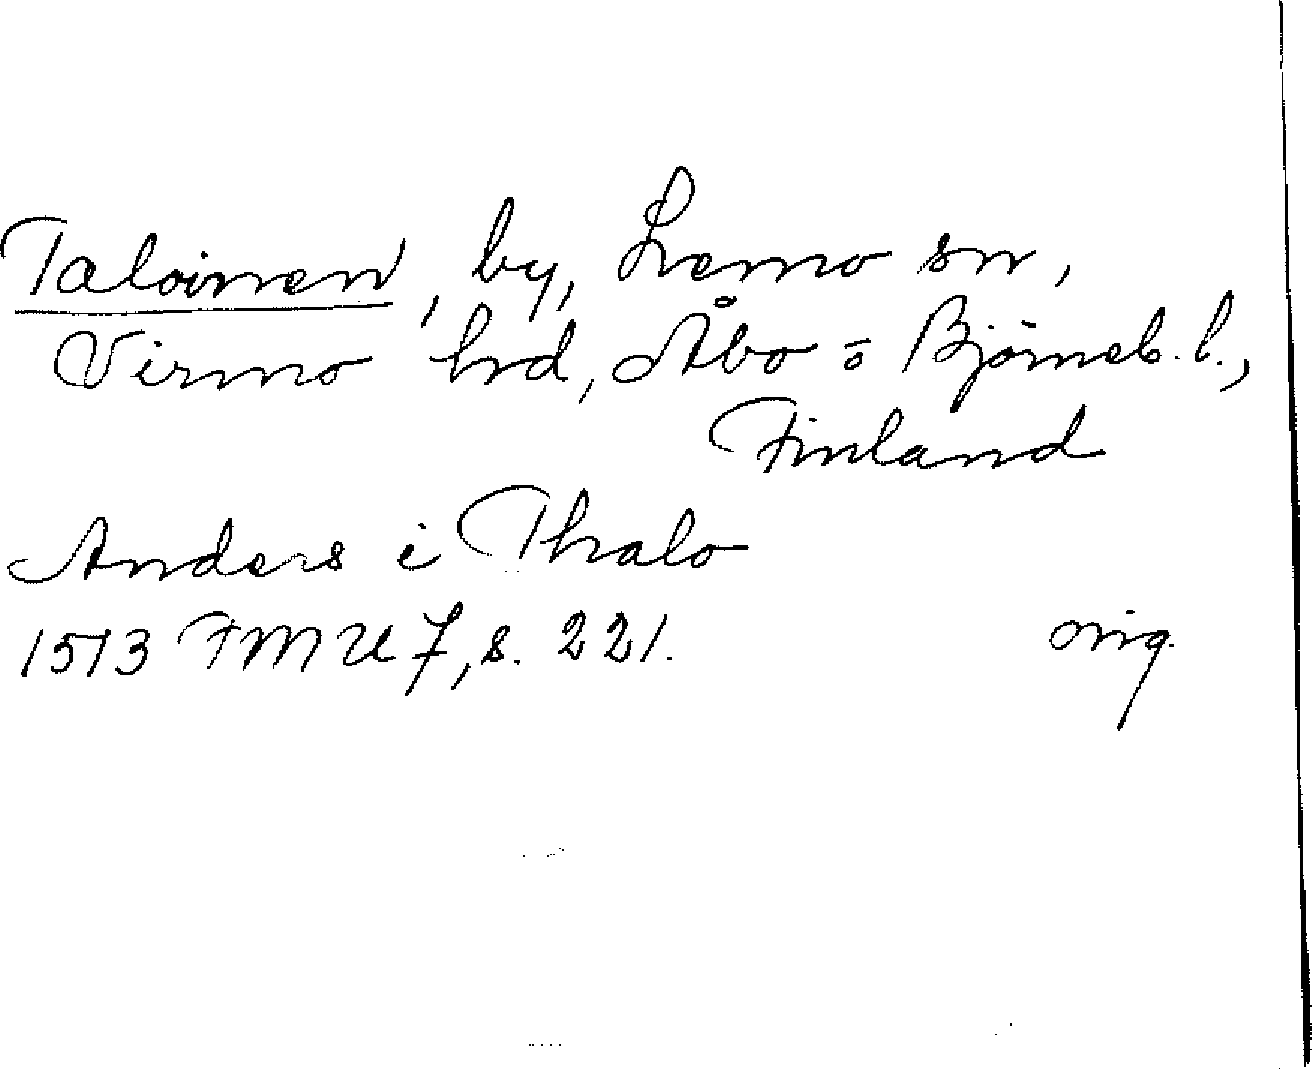 Taloinen, by, Lemo sn,
Virmo hd, Åbo o Björneb. l.,
Finland
Anders i Thalo
1513 FMU 7, s. 221. orig.